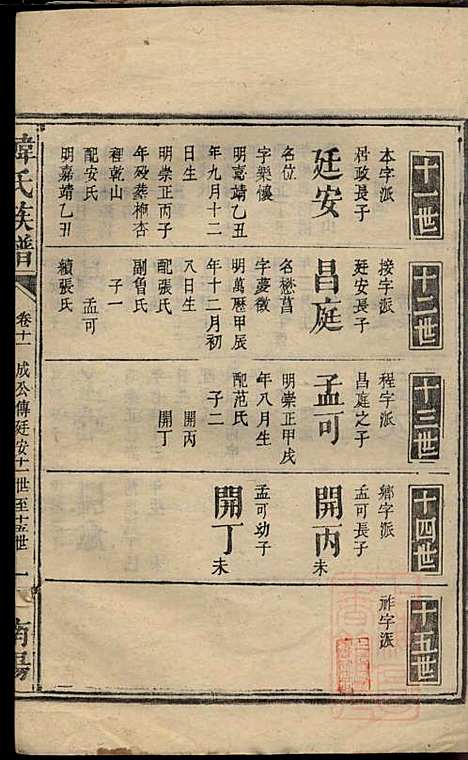 十一世
本字派
村政長子
廷安
名位
字樂懷
明嘉靖乙丑
年九月十二
日生
明崇正丙子
年歿葬柳杏
程乾山
配安氏
明嘉靖乙丑
十二世
接字派
廷安長子
昌庭
名懋菖
字夢徵
明萬歷甲辰
年十二月初
八日生
配張氏
副魯氏
子一
孟可
續張氏
十三世
程字派
昌庭之子
孟可
明崇正甲戌
年八月生
配范氏
子二
開丙
開丁
十四世
鄉字派
孟可長子
開丙未
孟可幼子
開丁未
十五世
祚字派
韓氏族譜
卷十一
成公傳廷安十一世至十五世
一
南陽